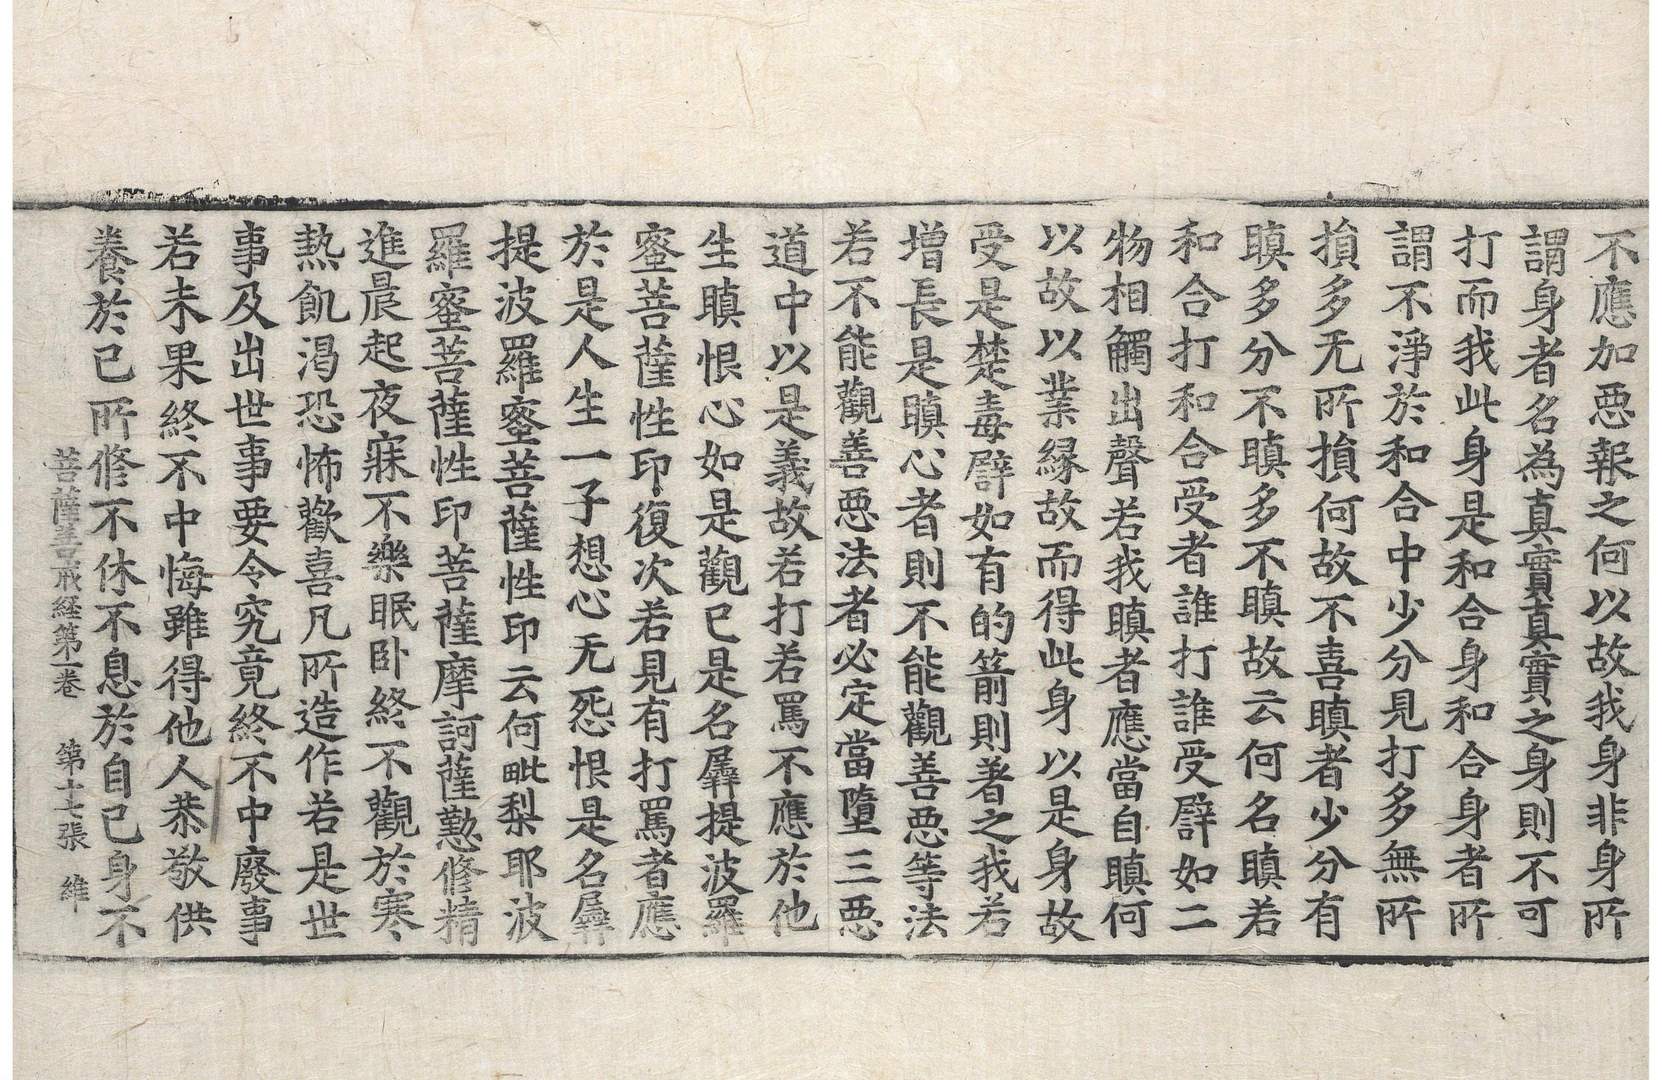 不應加惡報之何以故我身非身所
謂身者名為真實真實之身則不可
打而我此身是和合身和合身者所
謂不淨於和合中少分見打多無所
損多无所損何故不喜瞋者少分有
瞋多分不瞋多不瞋故云何名瞋若
和合打和合受者誰打誰受譬如二
物相觸出聲若我瞋者應當自瞋何
以故以業緣故而得此身以是身故
受是楚毒譬如有的箭則著之我若
增長是瞋心者則不能觀善惡等法
若不能觀善惡法者必定當墮三惡
道中以是義故若打若罵不應於他
生瞋恨心如是觀已是名羼提波羅
蜜菩薩性印復次若見有打罵者應
於是人生一子想心无怨恨是名羼
提波羅蜜菩薩性印云何毗梨耶波
羅蜜菩薩性印菩薩摩訶薩懃修精
進晨起夜寐不樂眠卧終不觀於寒
熱飢渴恐怖歡喜凡所造作若是世
事及出世事要令究竟終不中廢事
若未果終不中悔雖得他人恭敬供
養於已所修不休不息於自己身不
菩薩善戒経第一卷 第十七張 維